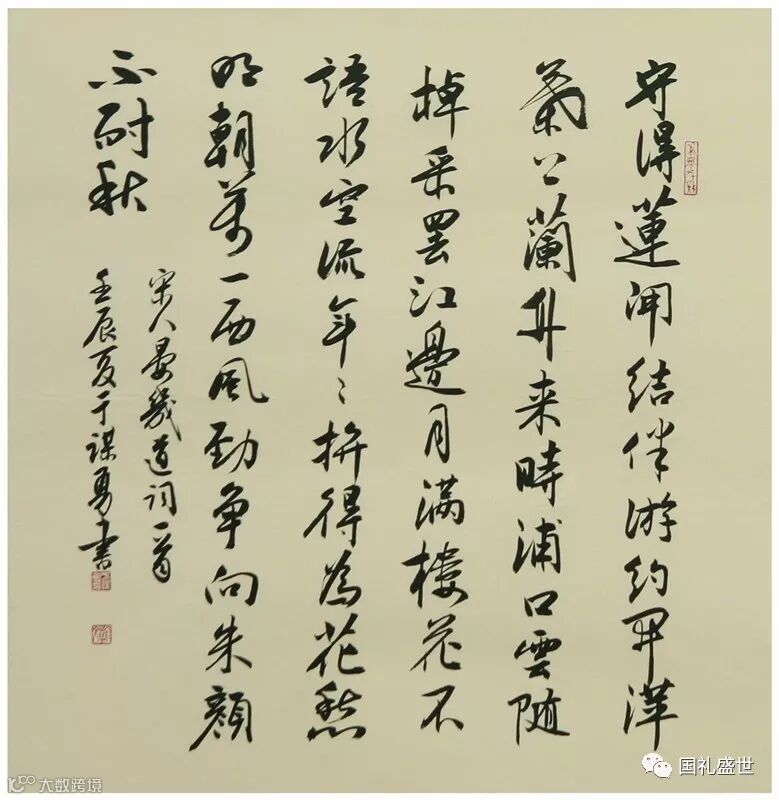 守得蓮開結伴游约開萍
葉上蘭舟来時浦口雲随
棹采罢江邊月满樓花不
語水空流年〻拚得為花愁
明朝萬一西風勁争向朱顔
不耐秋
宋人晏幾道词一首
壬辰夏于謀勇書
大数跨境
国礼盛世